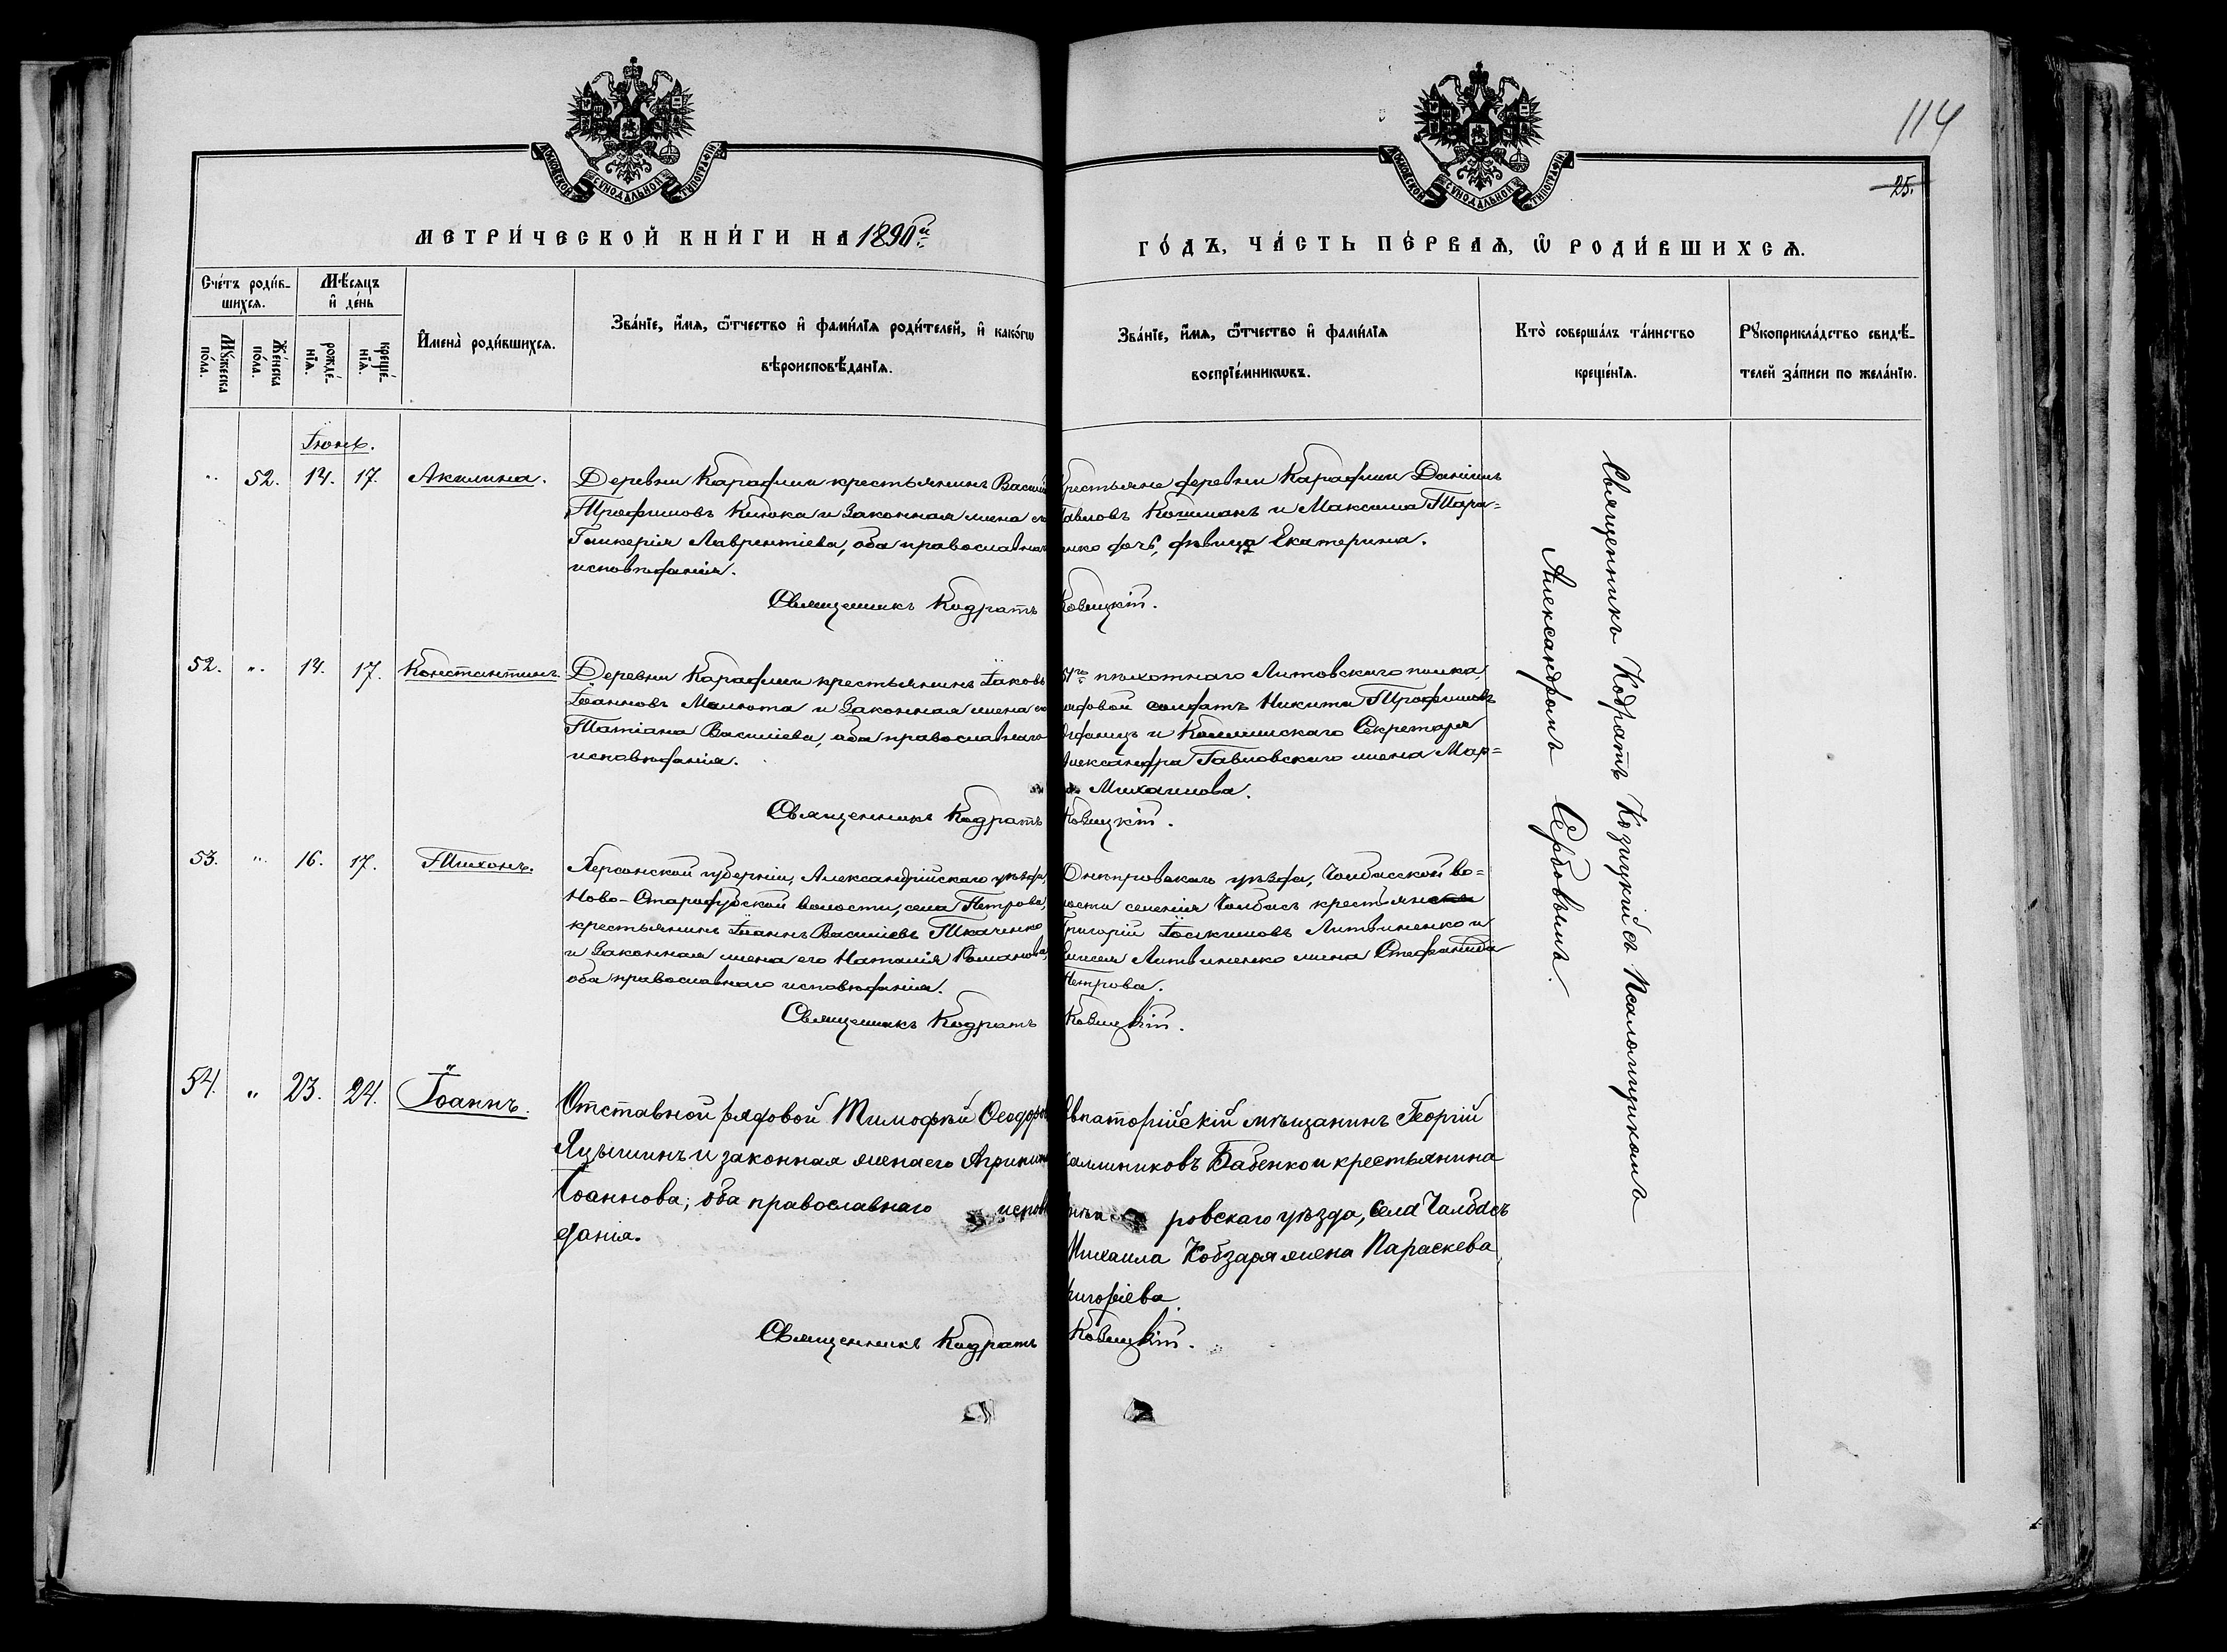 114
25.
МОСКОВСКОЙ СѴНОДАЛЬНОЙ ТИПОГРАФІИ
МОСКОВСКОЙ СѴНОДАЛЬНОЙ ТИПОГРАФІИ
МЕТРИ́ЧЕСКОЙ КНИ́ГИ НА 1890й
ГО́ДЪ, ЧА́СТЬ ПЕ́РВАѦ, Ѡ҆ РОДИ́ВШИХСѦ.
Сче́тъ роди́в-
шихсѧ.
Мѣ́сяцъ
и҆ де́нь
Мꙋ́жеска
по́ла.
Же́нска
по́ла.
рожде́-
нїѧ.
креще́-
нїѧ.
И҆мена̀ роди́вшихсѧ.
Зва́нїе, и҆́мѧ, ѻ҆́тчество и҆ фами́лїѧ роди́телей, и҆ како́гѡ
вѣроисповѣ́данїѧ.
Зва́нїе, и҆́мѧ, ѻ҆́тчество и҆ фами́лїѧ
воспрїе́мникѡвъ.
Кто̀ соверша́лъ та́инство
креще́нїѧ.
Рꙋкоприкла́дство свидѣ́-
телей за́писи по жела́нїю.
Іюнь.
" 52. 14. 17. Акилина.
Деревни Карафлии крестьянинъ Васил
Трофимовъ Кибока и законная жена е
Гликерія Лаврентіева, оба православна
исповѣданія.
Священникъ Кодратъ
Крестьяне деревни Карафлии Даніилъ
Павловъ Кошманъ и Максима Тара-
енко дочь, дѣвица Екатерина.
Козицкій.
52. " 14. 17. Константинъ.
Деревни Карафлии крестьянинъ Іаковъ
Іоанновъ Малюта и законная жена е
Татіана Василіева, оба православнаго
исповѣданія.
Священникъ Кодратъ
51го пѣхотнаго Литовскаго полка
рядовой солдатъ Никита Трофимовъ
и Коллежскаго Секретаря
Александра Павловскаго жена Мар-
Михаилова.
Козицкій.
53. " 16. 17. Тихонъ.
Херсонской губерніи, Александрійскаго уѣзда,
Ново-Стародубской волости, села Петрова,
крестьянинъ Іоаннъ Василіевъ Ткаченко
и законная жена его Наталія Романова,
оба православнаго исповѣданія.
Священникъ Кодратъ
Днѣпровскаго уѣзда, Чалбасской во-
лости селенія Чалбасъ крестьяне
Григорій Іоакимовъ Литвиненко и
Елисея Литвиненко жена Стефанида
Петрова.
Козицкій.
54. " 23. 24. Іоаннъ.
Отставной рядовой Тимофѣй Ѳеодоро
Яцышинъ и законная жена его Агрипин
Іоаннова, оба православнаго исповѣ
данія.
Священникъ Кодратъ
Евпаторійскій мѣщанинъ Георгій
Калинниковъ Бабенко и крестьянина
Днѣп ровскаго уѣзда, села Чалбасъ
Михаила Кобзаря жена Параскева
Григоріева.
Козицкій.
Священникъ Кодратъ Козицкій съ Псаломщикомъ
Александромъ Сербовымъ.